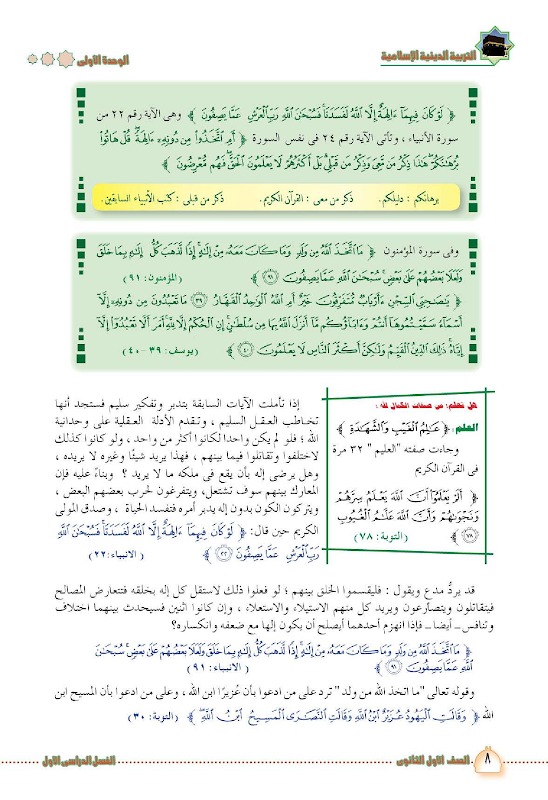 التربية الدينية الإسلامية
الوحدة الأولى
﴿ لَوْ كَانَ فِيهِمَآ ءَالِهَةٌ إِلَّا ٱللَّهُ لَفَسَدَتَا فَسُبْحَـٰنَ ٱللَّهِ رَبِّ ٱلْعَرْشِ عَمَّا يَصِفُونَ ﴾ وهى الآية رقم ٢٢ من
سورة الأنبياء ، وتأتى الآية رقم ٢٤ فى نفس السورة ﴿ أَمِ ٱتَّخَذُوا۟ مِن دُونِهِۦٓ ءَالِهَةً قُلْ هَاتُوا۟
بُرْهَـٰنَكُمْ هَـٰذَا ذِكْرُ مَن مَّعِىَ وَذِكْرُ مَن قَبْلِى بَلْ أَكْثَرُهُمْ لَا يَعْلَمُونَ ٱلْحَقَّ فَهُم مُّعْرِضُونَ ﴾
برهانكم : دليلكم. ذكر من معى : القرآن الكريم. ذكر من قبلى : كتب الأنبياء السابقين.
وفى سورة المؤمنون ﴿ مَا ٱتَّخَذَ ٱللَّهُ مِن وَلَدٍ وَمَا كَانَ مَعَهُۥ مِنْ إِلَـٰهٍ إِذًا لَّذَهَبَ كُلُّ إِلَـٰهٍۭ بِمَا خَلَقَ
وَلَعَلَا بَعْضُهُمْ عَلَىٰ بَعْضٍ سُبْحَـٰنَ ٱللَّهِ عَمَّا يَصِفُونَ ٩١ ﴾ (المؤمنون : ٩١)
﴿ يَـٰصَـٰحِبَىِ ٱلسِّجْنِ ءَأَرْبَابٌ مُّتَفَرِّقُونَ خَيْرٌ أَمِ ٱللَّهُ ٱلْوَٰحِدُ ٱلْقَهَّارُ ٣٩ مَا تَعْبُدُونَ مِن دُونِهِۦٓ إِلَّآ
أَسْمَآءً سَمَّيْتُمُوهَآ أَنتُمْ وَءَابَآؤُكُم مَّآ أَنزَلَ ٱللَّهُ بِهَا مِن سُلْطَـٰنٍ إِنِ ٱلْحُكْمُ إِلَّا لِلَّهِ أَمَرَ أَلَّا تَعْبُدُوٓا۟ إِلَّآ
إِيَّاهُ ذَٰلِكَ ٱلدِّينُ ٱلْقَيِّمُ وَلَـٰكِنَّ أَكْثَرَ ٱلنَّاسِ لَا يَعْلَمُونَ ٤٠ ﴾ (يوسف : ٣٩ - ٤٠)
هل تعلم: من صفات الكمال لله :
العلم: ﴿ عَـٰلِمُ ٱلْغَيْبِ وَٱلشَّهَـٰدَةِ ﴾
وجاءت صفته "العليم " ٣٢ مرة
فى القرآن الكريم
﴿ أَلَمْ يَعْلَمُوٓا۟ أَنَّ ٱللَّهَ يَعْلَمُ سِرَّهُمْ
وَنَجْوَىٰهُمْ وَأَنَّ ٱللَّهَ عَلَّـٰمُ ٱلْغُيُوبِ
٧٨ ﴾ (التوبة : ٧٨)
إذا تأملت الآيات السابقة بتدبر وتفكير سليم فستجد أنها
تخاطب العقل السليم ، وتقدم الأدلة العقلية على وحدانية
الله ؛ فلو لم يكن واحدا لكانوا أكثر من واحد ، ولو كانوا كذلك
لاختلفوا وتقاتلوا فيما بينهم ، فهذا يريد شيئًا وغيره لا يريده ،
وهل يرضى إله بأن يقع فى ملكه ما لا يريد ؟ وبناءً عليه فإن
المعارك بينهم سوف تشتعل، ويتفرغون لحرب بعضهم البعض ،
ويتركون الكون بدون إله يدبر أمره فتفسد الحياة ، وصدق المولى
الكريم حين قال: ﴿ لَوْ كَانَ فِيهِمَآ ءَالِهَةٌ إِلَّا ٱللَّهُ لَفَسَدَتَا فَسُبْحَـٰنَ ٱللَّهِ
رَبِّ ٱلْعَرْشِ عَمَّا يَصِفُونَ ٢٢ ﴾ ( الانبياء : ٢٢)
قد يردُّ مدع ويقول : فليقسموا الخلق بينهم ؛ لو فعلوا ذلك لاستقل كل إله بخلقه فتتعارض المصالح
فيتقاتلون ويتصارعون ويريد كل منهم الاستيلاء والاستعلاء ، وإن كانوا اثنين فسيحدث بينهما اختلاف
وتنافس ـ أيضا ـ فإذا انهزم أحدهما أيصلح أن يكون إلها مع ضعفه وانكساره؟
﴿ مَا ٱتَّخَذَ ٱللَّهُ مِن وَلَدٍ وَمَا كَانَ مَعَهُۥ مِنْ إِلَـٰهٍ إِذًا لَّذَهَبَ كُلُّ إِلَـٰهٍۭ بِمَا خَلَقَ وَلَعَلَا بَعْضُهُمْ عَلَىٰ بَعْضٍ سُبْحَـٰنَ
ٱللَّهِ عَمَّا يَصِفُونَ ٩١ ﴾ ( الانبياء : ٩١ )
وقوله تعالى "ما اتخذ الله من ولد " ترد على من ادعوا بأن عُزيرًا ابن الله ، وعلى من ادعوا بأن المسيح ابن
الله ﴿ وَقَالَتِ ٱلْيَهُودُ عُزَيْرٌ ٱبْنُ ٱللَّهِ وَقَالَتِ ٱلنَّصَـٰرَى ٱلْمَسِيحُ ٱبْنُ ٱللَّهِ ﴾ (التوبة : ٣٠ )
٨
الصف الأول الثانوى
الفصل الدراسى الأول